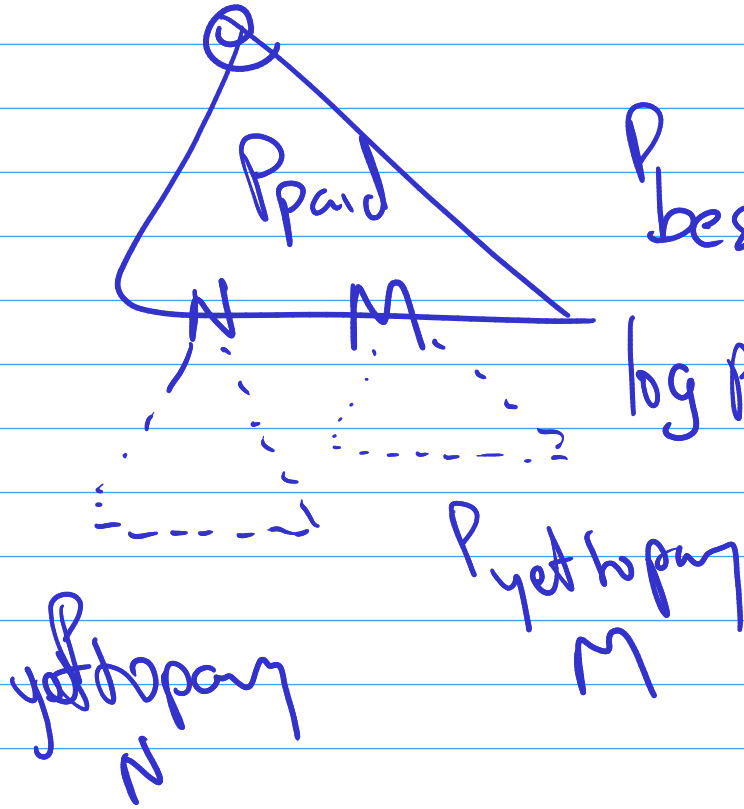 P paid
P bes
N M
log p
P yet to pay M
P yet to pay N